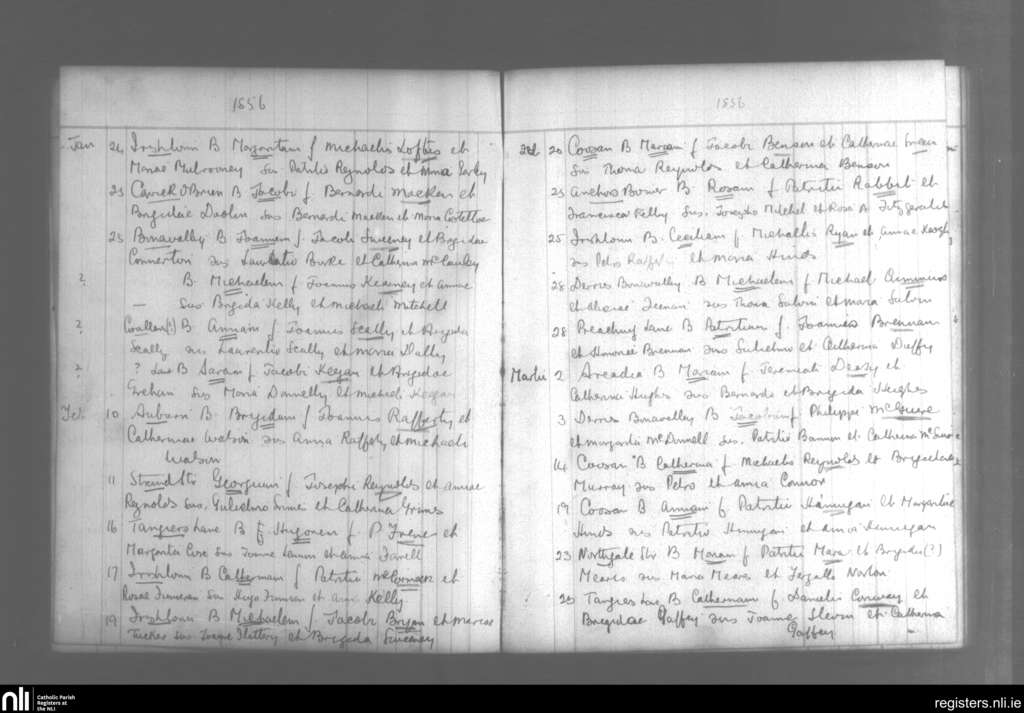 1856
Jan 24 Irishtown B Margaritam f Michaelis Loftus et
Mariae Mulrooney Sus Patritio Reynolds et Anna Farley
25 Carrick O'Brien B Jacobi f Bernardi Macken et
Brigidae Daolin sus Bernardi Macken et Maria Costelloe
25 Bunavalley B Joannem f. Jacobi Sweeney et Brigidae
Connerton sus Laurentio Burke et Catherina McCauley
? B. Michaelem f Joannis Kearney et Annae
— Sus Brigida Kelly et Michaeli Mitchell
? Coallen(?) B Annam f Joannis Scally et Brigida
Scally sus Laurentio Scally et Maria Dally
? ? Lane B Saram f Jacobi Keegan et Brigidae
Grehan Sus Maria Donnelly et Michaeli Keegan
Feb 10 Auburn B Brigidam f Joannis Rafferty et
Catherinae Watson sus Anna Rafferty et Michaeli
Watson
11 Strand Str Georgium f Josephi Reynolds et Annae
Reynolds sus. Gulielmo Grimes et Catherina Grimes
16 Tangiers Lane B Hugonem f P et
Margarita sus Joanne et Anna Farrell
17 Irishtown B Catherinam f Patritii McCormack et
Rosae Sus Hugo et Ann Kelly
19 Irishtown B Michaelem f Jacobi Bryan et Mariae
Tucker Sus Joanne Slattery et Brigida Sweeney
1856
Feb 20 Coosan B Mariam f Jacobi Benson et Catherinae
Sus Thoma Reynolds et Catherina Benson
23 B. Rosam f Patritii Rabbit et
Francisca Kelly Sus. Josepho Mitchel et Rosa A Fitzgerald
25 Irishtown B. Ceciliam f Michaelis Ryan et Annae Keogh
sus Petro et Maria Hinds
28 Derries Bunavalley B Michaelem f Michael
et sus Thoma Galvin et Maria Galvin
28 Preaching Lane B Patritium f. Joannis Brennan
et Honoriae Brennan sus Gulielmo et Catherina Duffy
Martii 2 Arcadia B Mariam f Jeremiah Deasy et
Catherina Hughes sus Bernardo et Brigida Hughes
3 Derries Bunavalley B Jacobum f Philippi McGuire
et Margarita McDonnell sus. Patritio Bannon et Catherina McGuire
14 Coosan B Catherina f Michaelis Reynolds et Brigidae
Murray sus Petro et Anna Connor
19 Coosan B Annam f Patritii Hannigan et Margaritae
Hinds sus Patritio Hannigan et Anna Hannigan
23 Northgate Str B Mariam f Patritii Mara et Brigidae(?)
Meares sus Maria Meares et Fergallo Norton
25 Tangiers Lane B Catherinam f Danielis Conway et
Brigidae Gaffey sus Joanne Slevin et Catherina
Gaffey
nli
Catholic Parish
Registers at
the NLI
registers.nli.ie